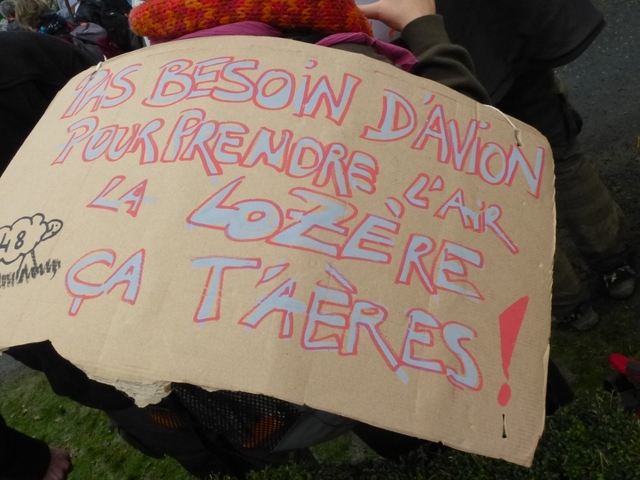 PAS BESOIN D'AVION
POUR PRENDRE L'AIR
LA LOZÈRE
48
ÇA T'AÈRES !